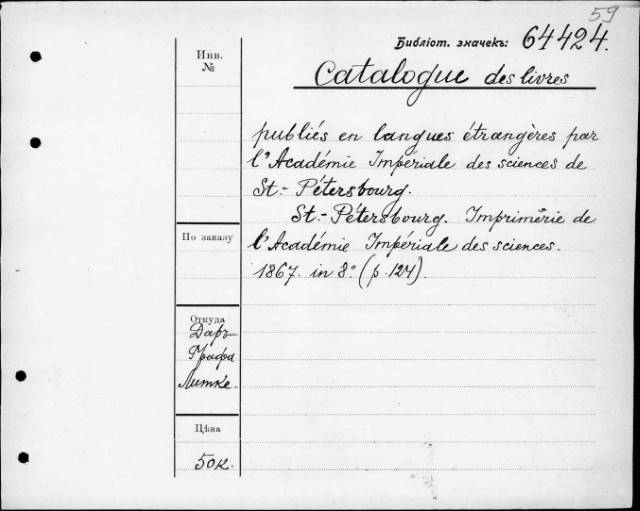 59
Библіот. значекъ: 64424.
Инв.
№
Catalogue des livres
publiés en langues étrangères par
l'Académie Impériale des sciences de
St.-Pétersbourg.
St.-Pétersbourg. Imprimérie de
По заказу
l'Académie Impériale des sciences.
1867. in 8º. (p. 124).
Откуда
Даръ
Графа
Литке.
Цѣна
50к.